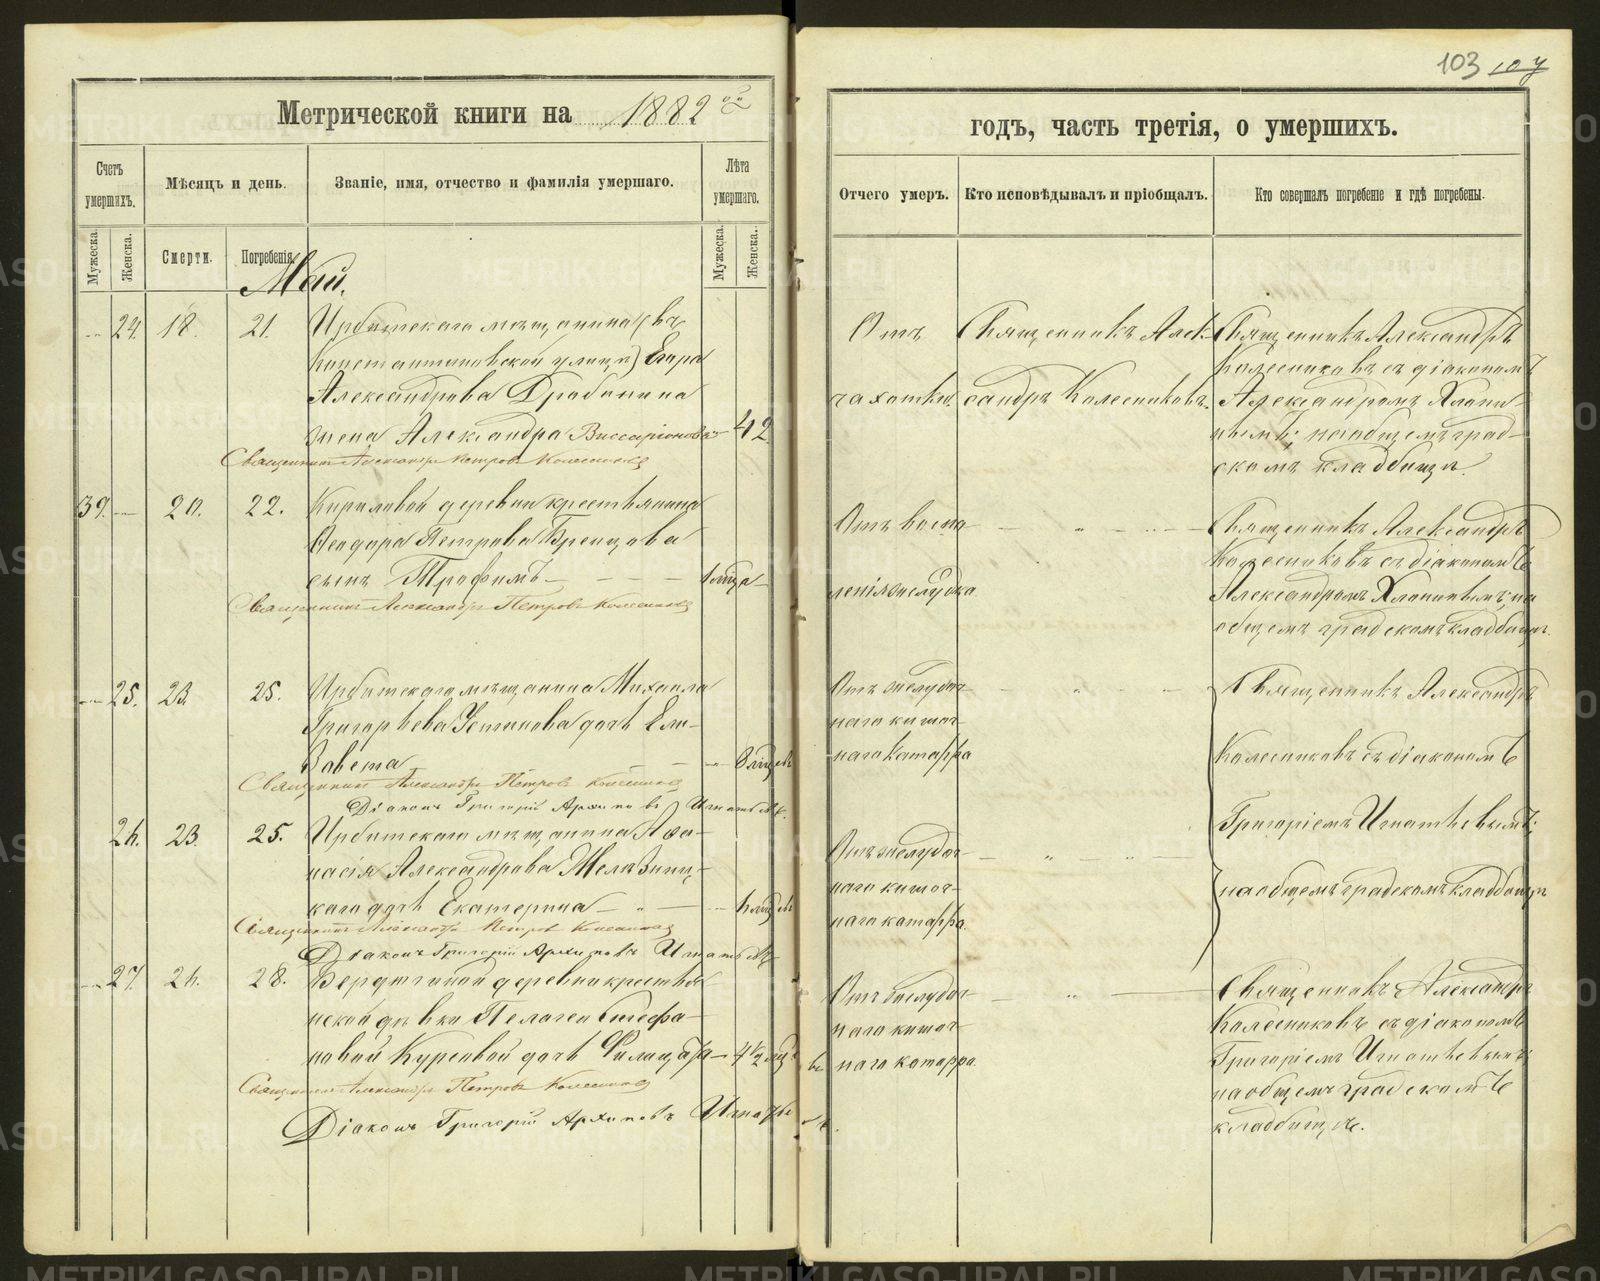 103 107
Метрической книги на 1882 ой
годъ, часть третія, о умершихъ.
Счетъ умершихъ.
Мѣсяцъ и день.
Званіе, имя, отчество и фамилія умершаго.
Лѣта умершаго.
Мужеска.
Женска.
Смерти.
Погребенія.
Мужеска.
Женска.
Отчего умеръ.
Кто исповѣдывалъ и пріобщалъ.
Кто совершалъ погребеніе и гдѣ погребены.
Май.
24. 18. 21. Ирбитскаго мѣщанина (въ
Константиновской улицѣ) Егора
Александрова Дробинина
жена Александра Виссаріонова 42
Священникъ Александръ Петровъ Колесниковъ
Отъ
чахотки.
Священникъ Алек-
сандръ Колесниковъ.
Священникъ Александръ
Колесниковъ съ діакономъ
Александромъ Хлопи-
нымъ; на общемъ град-
скомъ кладбищѣ.
39. 20. 22. Кириловой деревни крестьянина
Ѳеодора Петрова Бренцова
сынъ Трофимъ 1 мѣсца
Священникъ Александръ Петровъ Колесниковъ
Отъ воспа-
ленія желудка
Священникъ Александръ
Колесниковъ съ діакономъ
Александромъ Хлопинымъ; на
общемъ градскомъ кладбищѣ.
25. 23. 25. Ирбитскаго мѣщанина Михаила
Григорьева Устинова дочь Ели-
завета 8 мѣцевъ
Священникъ Александръ Петровъ Колесниковъ
Діаконъ Григорій Архиповъ Игнатьевъ.
Отъ желудоч-
наго кишоч-
наго катарра
Священникъ Александръ
Колесниковъ съ діакономъ
Григоріемъ Игнатьевымъ;
на общемъ градскомъ кладбищѣ
26. 23. 25. Ирбитскаго мѣщанина Аѳа-
насія Александрова
каго дочь Екатерина 6 мѣцевъ
Священникъ Александръ Петровъ Колесниковъ
Діаконъ Григорій Архиповъ Игнатьевъ
Отъ желудоч-
наго кишоч-
наго катарра.
27. 26. 28. Бердюгиной деревни крестьян-
ской дѣвки Пелагеи Стефа-
новой Курсовой дочь Филицата 4½ мѣц
Священникъ Александръ Петровъ Колесниковъ
Діаконъ Григорій Архиповъ Игнатьевъ.
Отъ желудоч-
наго кишоч-
наго катарра.
Священникъ Александръ
Колесниковъ съ діакономъ
Григоріемъ Игнатьевымъ;
на общемъ градскомъ
кладбищѣ.
METRIKI.GASO-URAL.RU